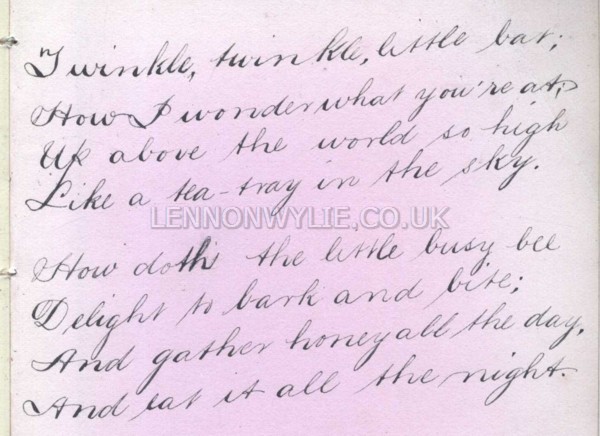 Twinkle, twinkle, little bat;
How I wonder what you're at;
Up above the world so high
Like a tea-tray in the sky.
LENNONWYLIE.CO.UK
How doth the little busy bee
Delight to bark and bite;
And gather honey all the day,
And eat it all the night.